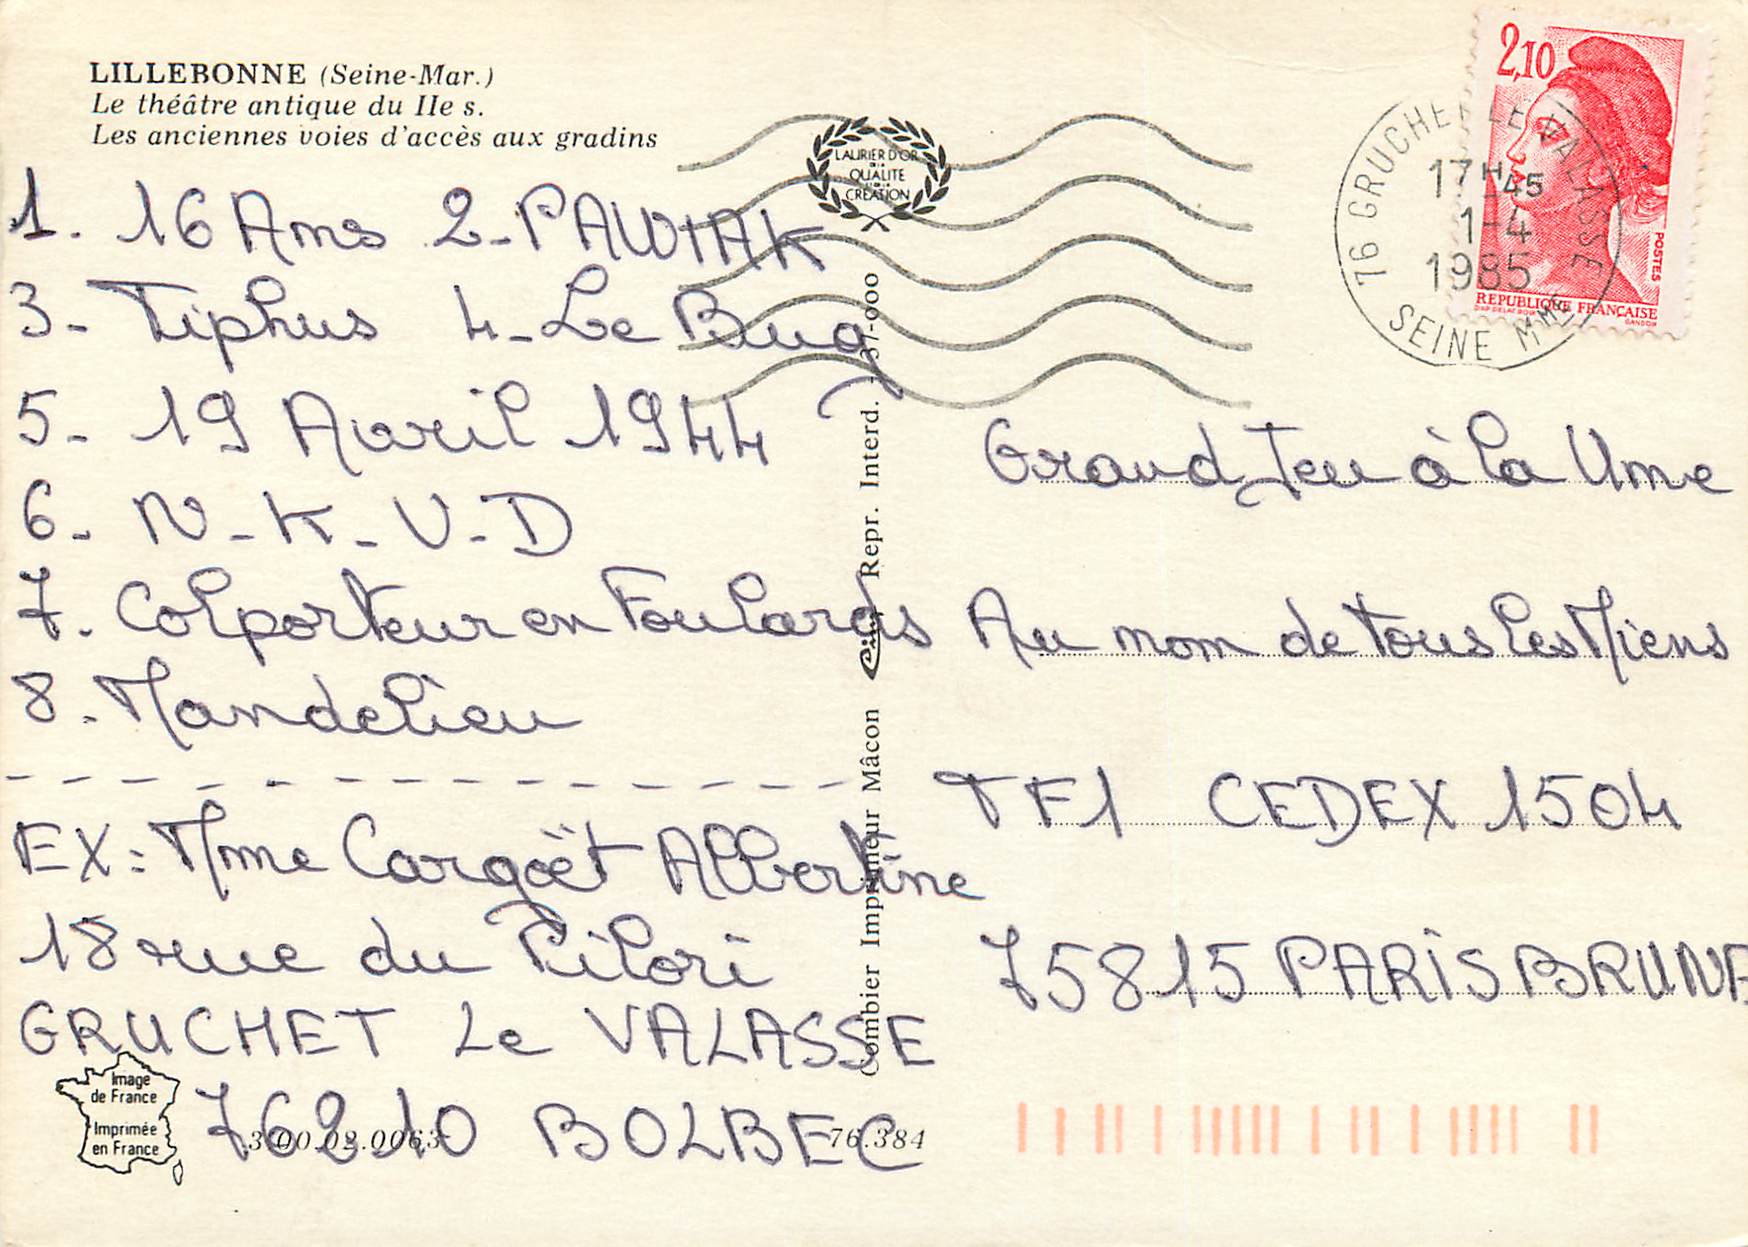 LILLEBONNE (Seine-Mar.)
Le théâtre antique du IIe s.
Les anciennes voies d'accès aux gradins
1. 16 Ans 2 - PAWIAK
3 - Tiphus 4 - Le Bug
5 - 19 Avril 1944
6 - N - K - V - D
7. Colporteur en Foulards
8. Mandelieu
EX: Mme Cargoët Albertine
18 rue du Pilori
GRUCHET Le VALASSE
76210 BOLBEC
Image
de France
Imprimée
en France
76.384
LAURIER D'OR
DE LA
QUALITE
DE LA
CREATION
Combier Imprimeur Mâcon Repr. Interd. - 37-000
2,10
POSTES
REPUBLIQUE FRANÇAISE
GANDON
76 GRUCHET LE VALASSE
17H45
1-4
1985
SEINE MME
Grand Jeu à la Une
Au nom de tous les Miens
TF1 CEDEX 1504
75815 PARIS BRUNE